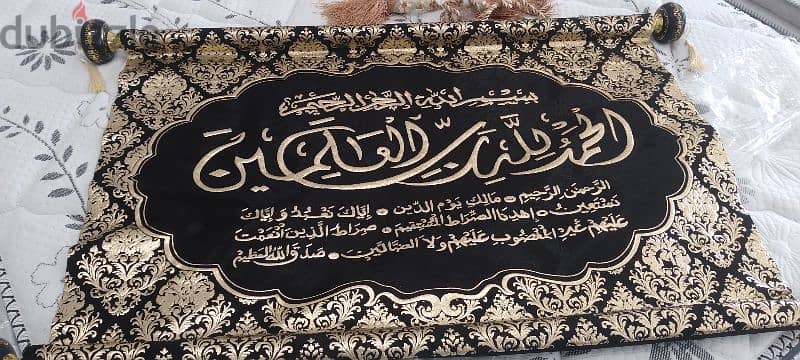 dubizzle
بسم الله الرحمن الرحيم
الحمد لله رب العالمين
الرحمن الرحيم • مالك يوم الدين • إياك نعبد وإياك
نستعين • اهدنا الصراط المستقيم • صراط الذين أنعمت
عليهم غير المغضوب عليهم ولا الضالين • صدق الله العظيم